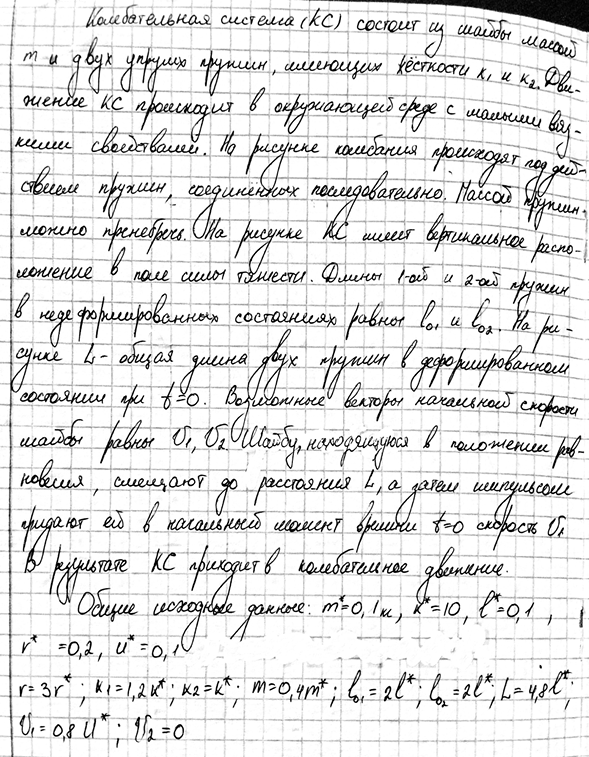 Колебательная система (КС) состоит из шайбы массой
m и двух упругих пружин, имеющих жёсткости к₁ и к₂. Дви-
жение КС происходит в окружающей среде с малыми вяз-
кими свойствами. На рисунке колебания происходят под дей-
ствием пружин, соединённых последовательно. Массой пружин
можно пренебречь. На рисунке КС имеет вертикальное распо-
ложение в поле силы тяжести. Длины 1-ой и 2-ой пружин
в недеформированных состояниях равны l₀₁ и l₀₂. На ри-
сунке L - общая длина двух пружин в деформированном
состоянии при t=0. Возможные векторы начальной скорости
шайбы равны υ₁, υ₂ Шайбу, находящуюся в положении рав-
новесия, смещают до расстояния L, а затем импульсом
придают ей в начальный момент времени t=0 скорость υ₁
В результате КС приходит в колебательное движение.
Общие исходные данные: m*=0,1кг, к*=10, l*=0,1,
r* =0,2, u*=0,1
r=3r*; к₁=1,2к*; к₂=к*; m=0,4m*; l₀₁=2l*; l₀₂=2l*; L=4,8l*;
υ₁=0,8u*; υ₂=0